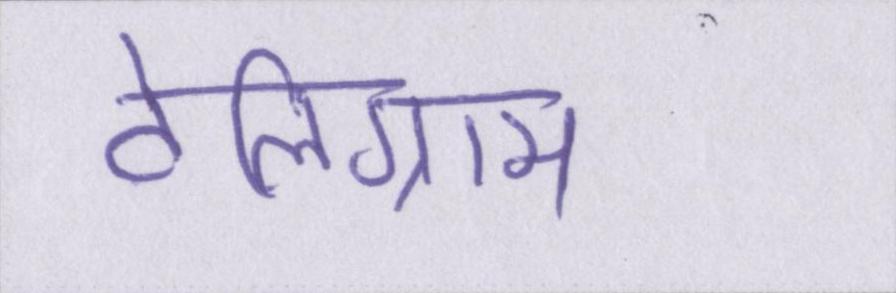 ठेलिग्राम